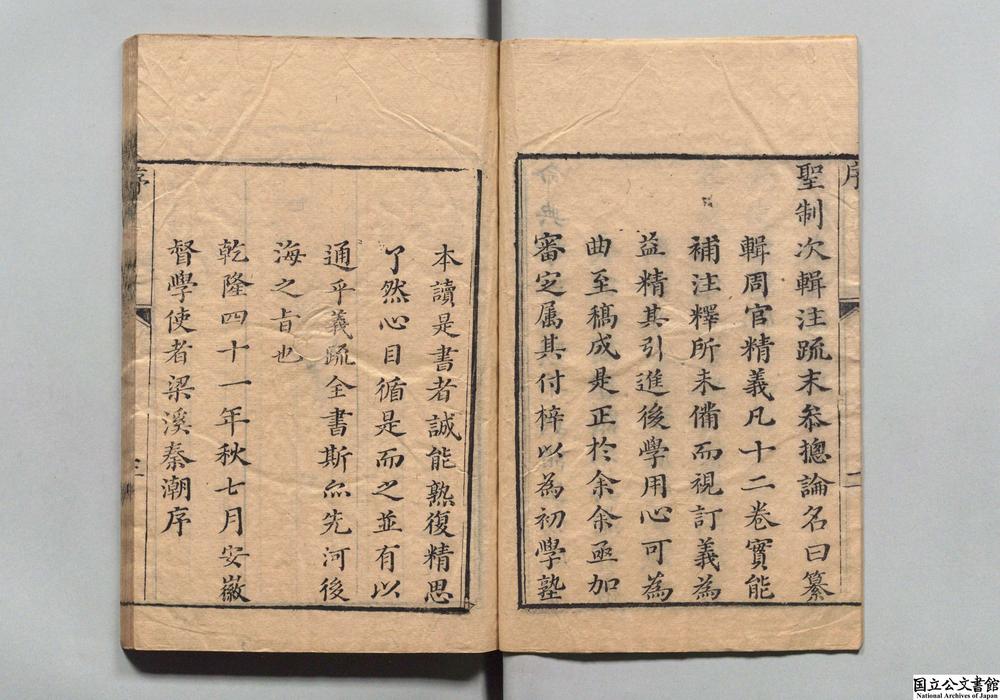 聖制次輯注疏末叅摠論名曰纂
輯周官精義凡十二卷實能
補注釋所未備而視訂義為
益精其引進後學用心可為
曲至稿成是正於余余亟加
審定属其付梓以為初學塾
本讀是書者誠能熟復精思
了然心目循是而之並有以
通乎義疏全書斯亦先河後
海之旨也
乾隆四十一年秋七月安徽
督學使者梁溪秦潮序
序
序
国立公文書館
National Archives of Japan